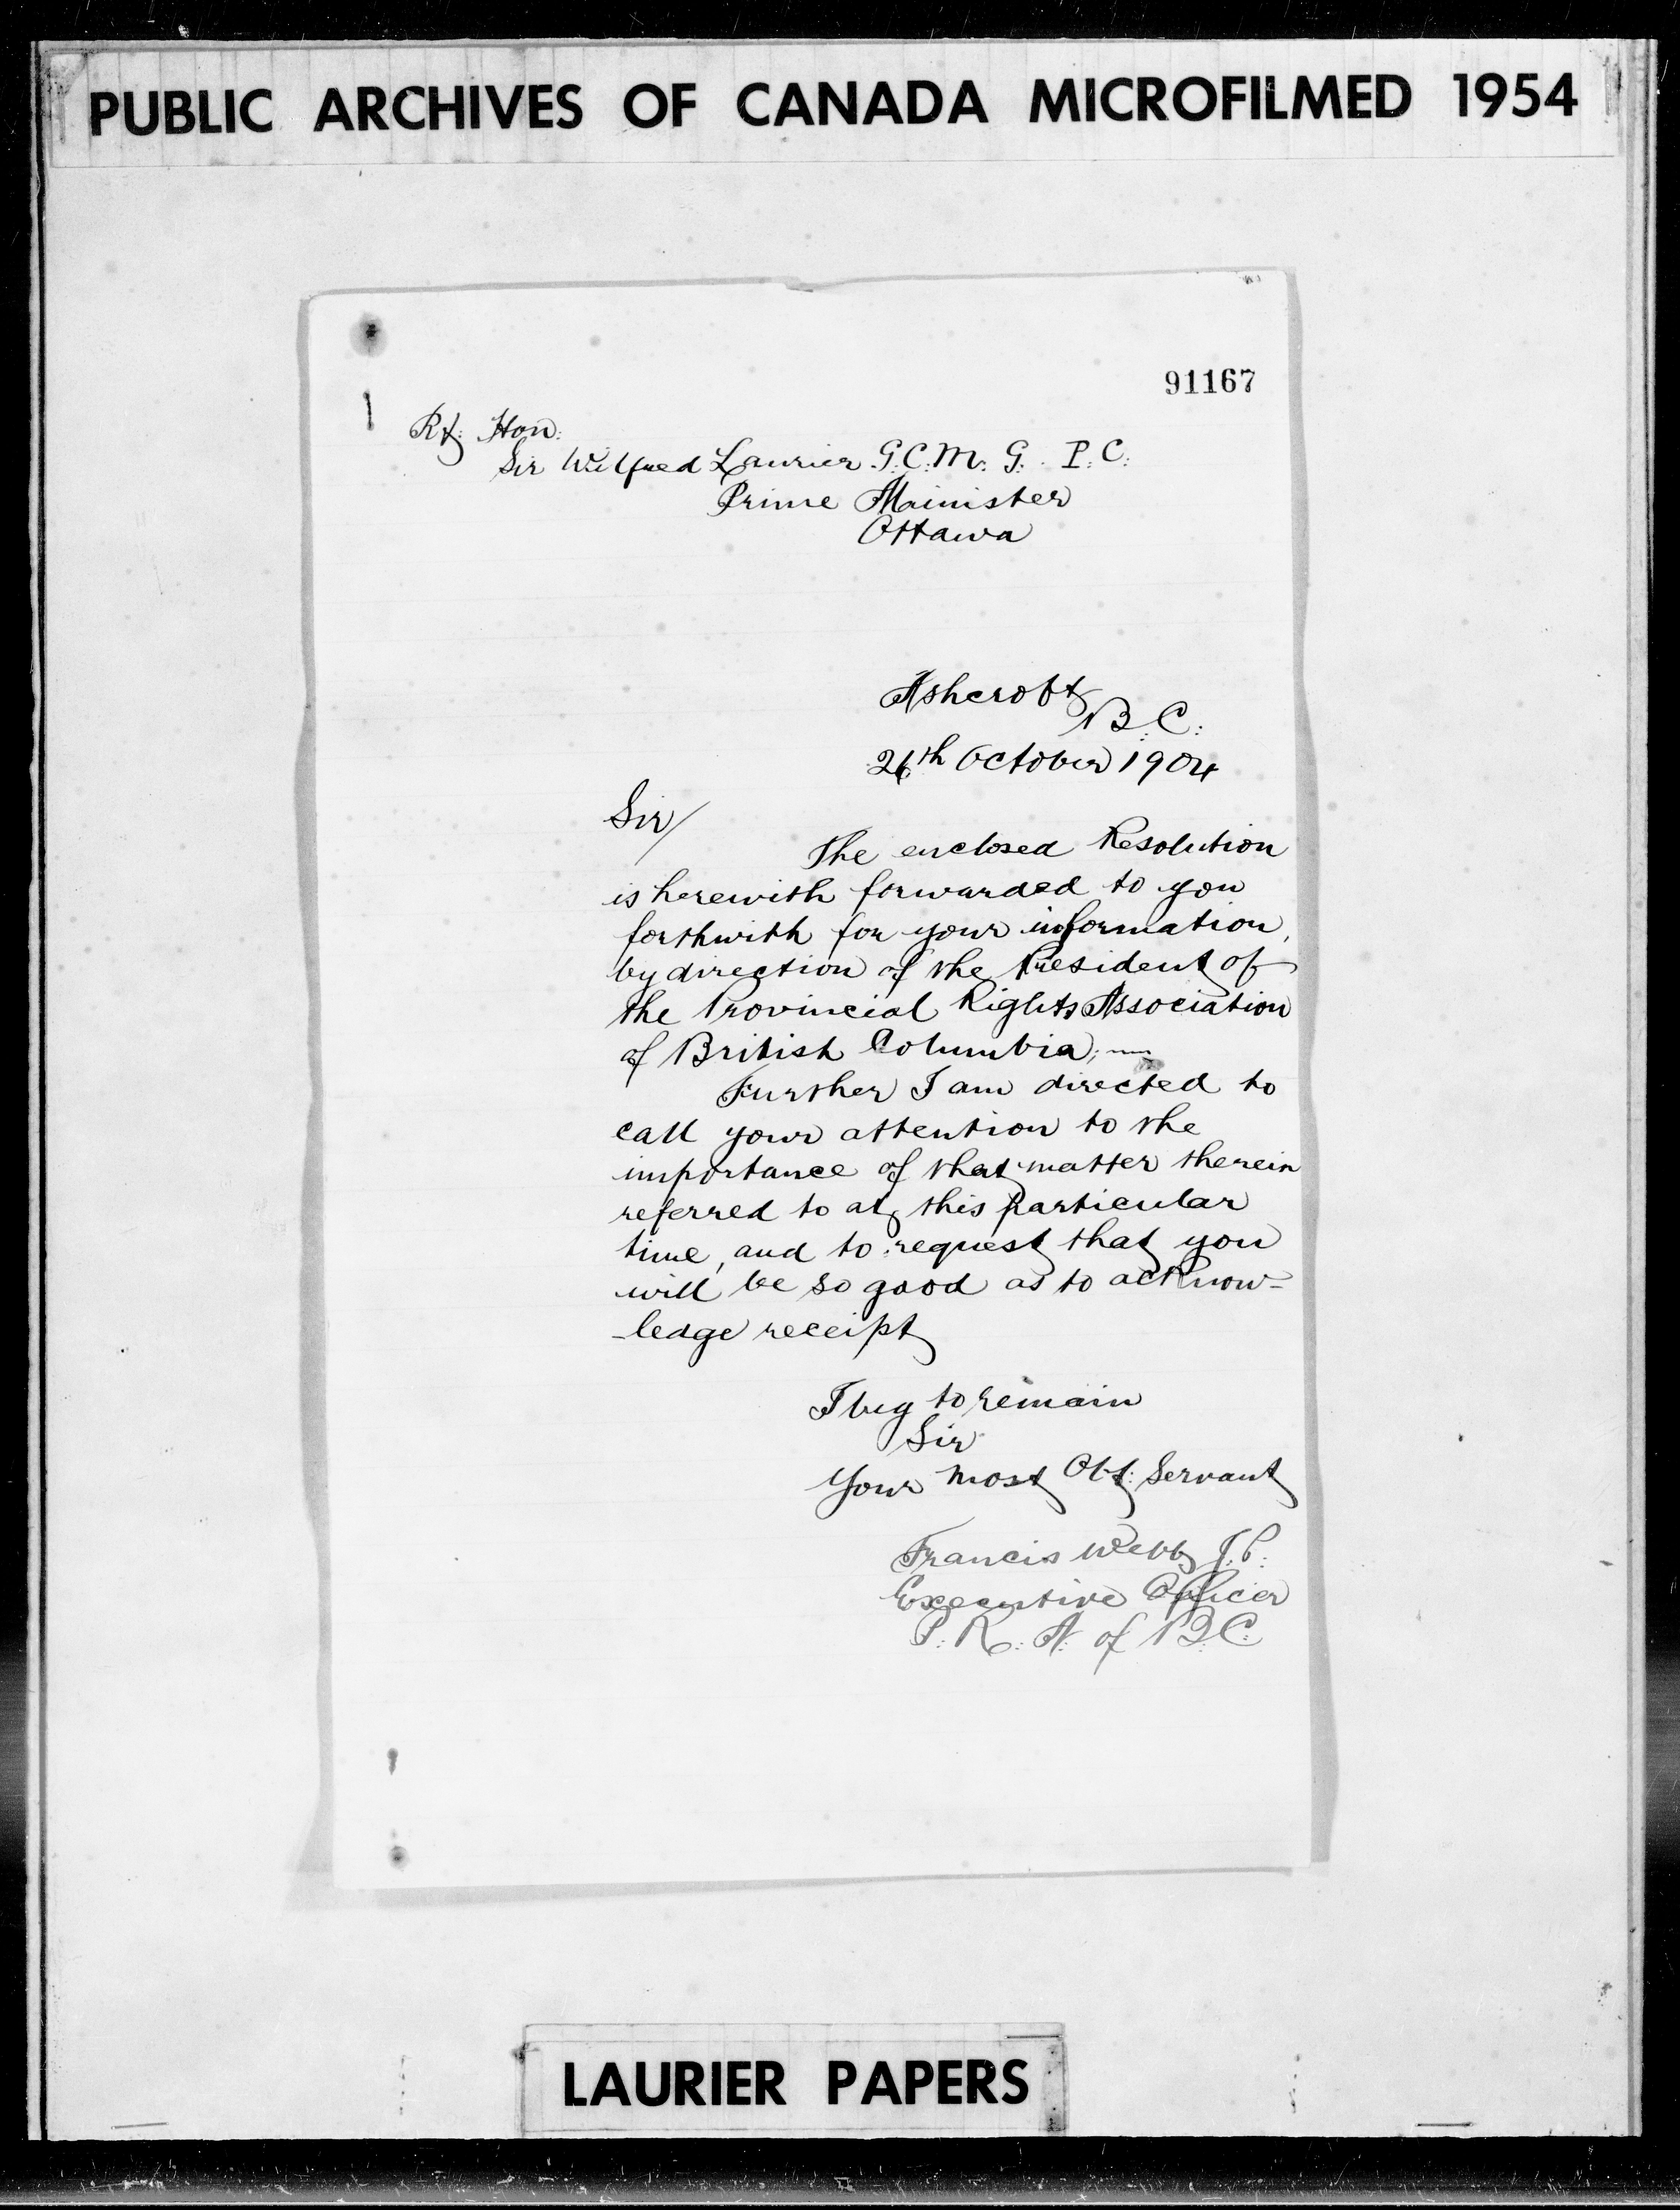 PUBLIC ARCHIVES OF CANADA MICROFILMED 1954
91167
Rt: Hon:
Sir Wilfred Laurier G.C.M.G. P.C.
Prime Minister
Ottawa
Ashcroft
B.C.
26th October 1904
Sir/
The enclosed Resolution
is herewith forwarded to you
forthwith for your information,
by direction of the President of
the Provincial Rights Association
of British Columbia;
Further I am directed to
call your attention to the
importance of that matter therein
referred to at this particular
time, and to request that you
will be so good as to acknow-
-ledge receipt
I beg to remain
Sir
Your Most Obt: Servant
Francis Webb J.P.
Executive Officer
P.R.A. of B.C.
LAURIER PAPERS